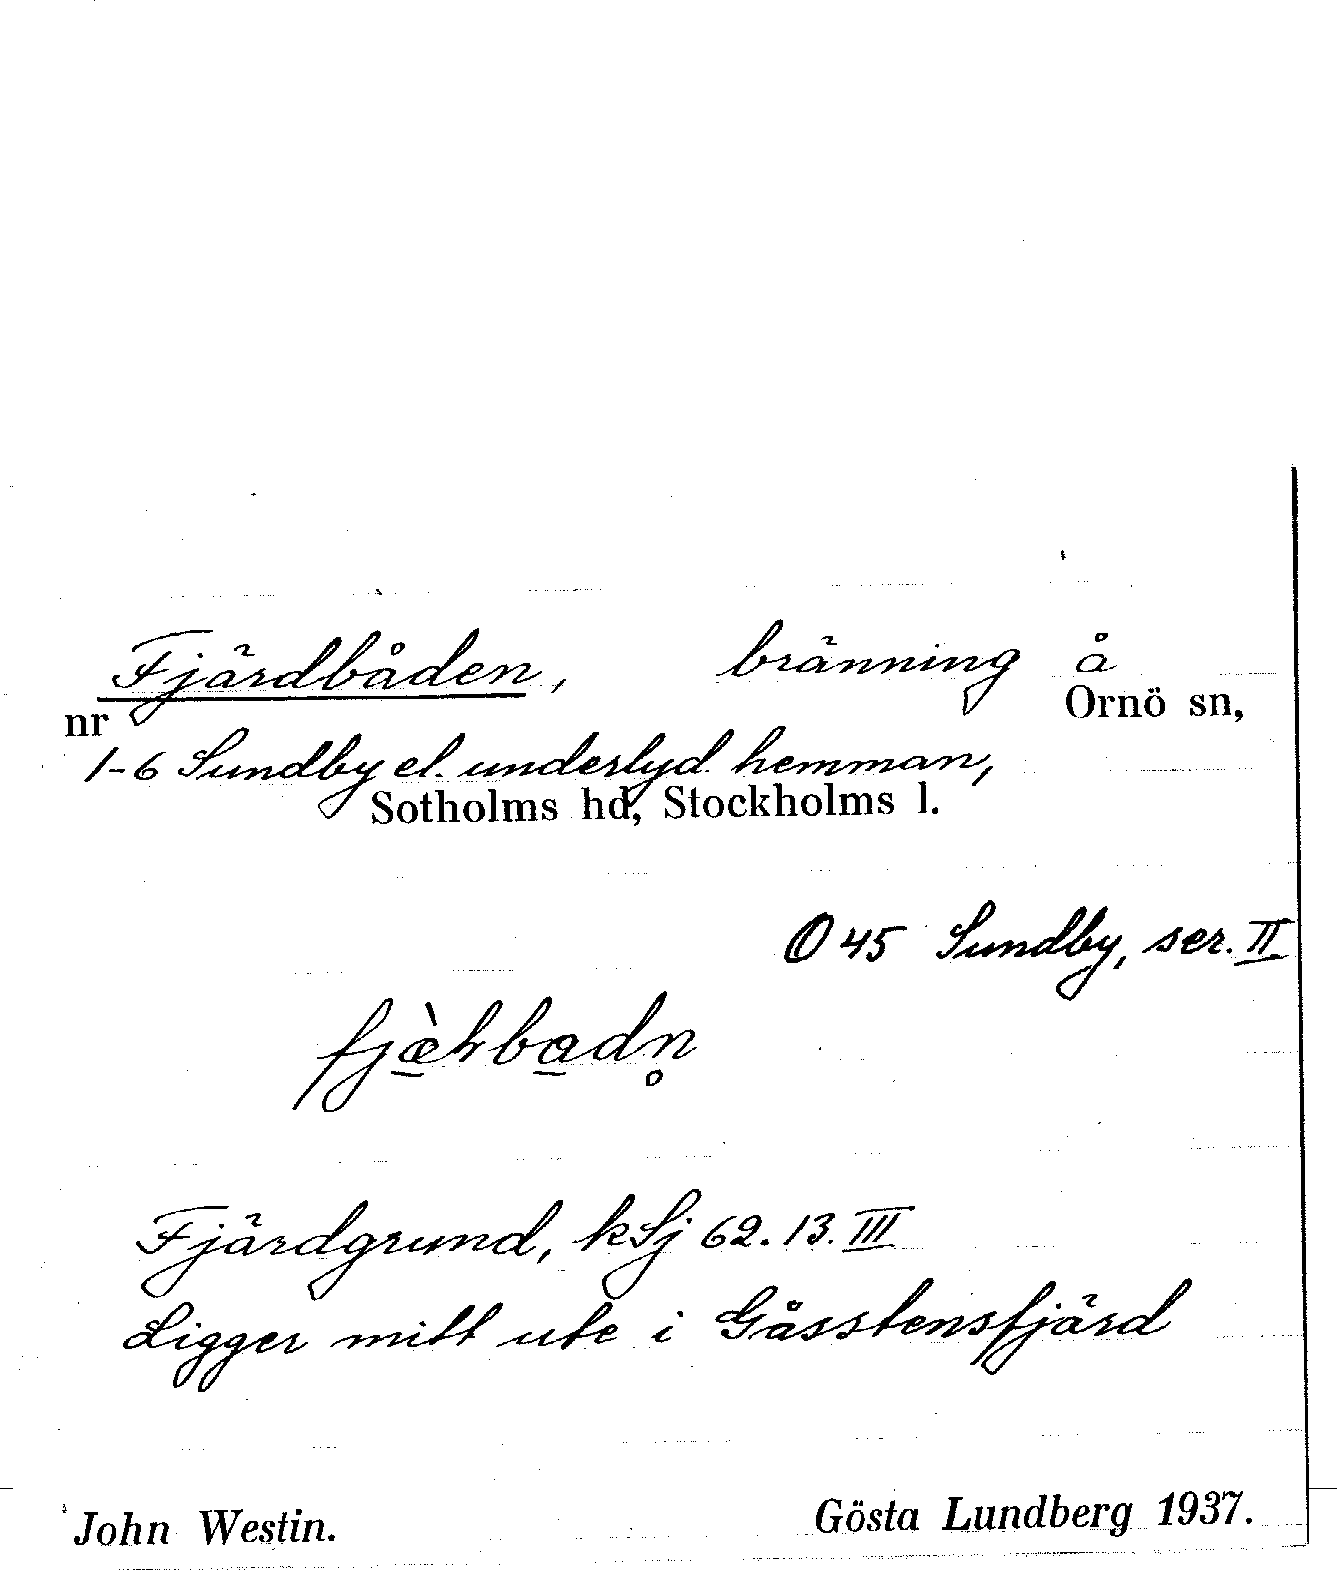 Fjärdbåden, bränning å
nr Ornö sn,
1-6 Sundby el. underlyd. hemman,
Sotholms hd, Stockholms l.
O 45 Sundby, ser. II
Fjärdgrund, kSj 62. 13. III
Ligger mitt ute i Gåsstensfjärd
John Westin. Gösta Lundberg 1937.